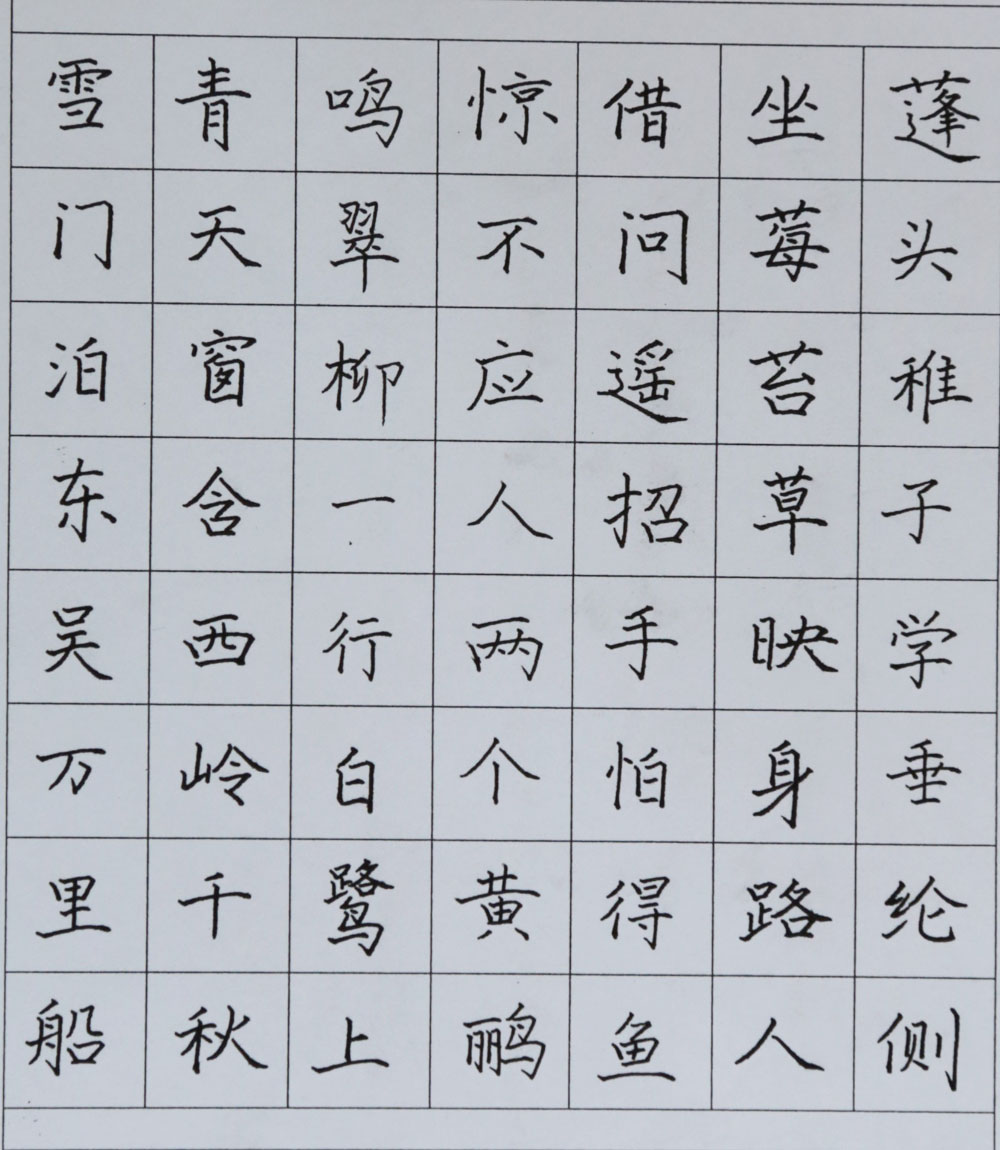 蓬头稚子学垂纶侧
坐莓苔草映身路人
借问遥招手怕得鱼
惊不应人两个黄鹂
鸣翠柳一行白鹭上
青天窗含西岭千秋
雪门泊东吴万里船